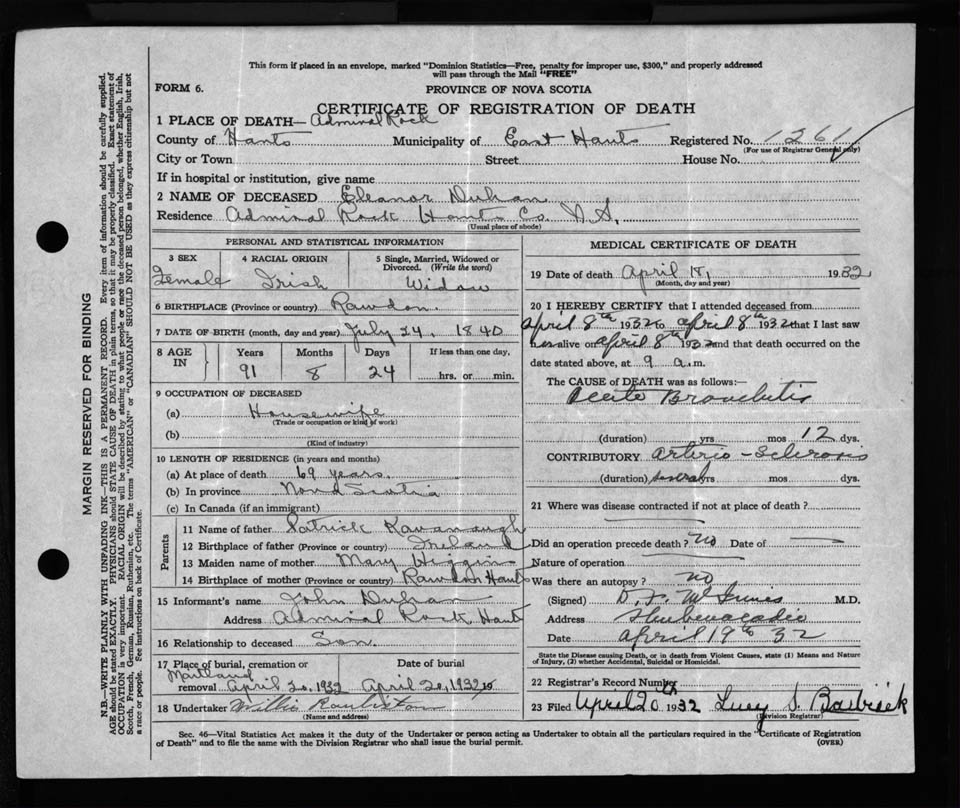 This form if placed in an envelope, marked "Dominion Statistics—Free, penalty for improper use, $300," and properly addressed
will pass through the Mail "FREE"
FORM 6. PROVINCE OF NOVA SCOTIA
CERTIFICATE OF REGISTRATION OF DEATH
1 PLACE OF DEATH— Admiral Rock
County of Hants Municipality of East Hants Registered No. 1261
(For use of Registrar General only)
City or Town Street House No.
If in hospital or institution, give name
2 NAME OF DECEASED Eleanor Duhan
Residence Admiral Rock Hants Co. N.S.
(Usual place of abode)
PERSONAL AND STATISTICAL INFORMATION
3 SEX 4 RACIAL ORIGIN 5 Single, Married, Widowed or
Divorced. (Write the word)
Female Irish Widow
6 BIRTHPLACE (Province or country) Rawdon.
7 DATE OF BIRTH (month, day and year) July 24, 1840
8 AGE IN Years Months Days If less than one day,
91 8 24 hrs. or min.
9 OCCUPATION OF DECEASED
(a) Housewife
(Trade or occupation or kind of work)
(b)
(Kind of industry)
10 LENGTH OF RESIDENCE (in years and months)
(a) At place of death 69 years.
(b) In province Nova Scotia
(c) In Canada (if an immigrant)
Parents
11 Name of father Patrick Kavanaugh
12 Birthplace of father (Province or country) Ireland
13 Maiden name of mother Mary Higgins
14 Birthplace of mother (Province or country) Rawdon Hants
15 Informant's name John Duhan
Address Admiral Rock Hants
16 Relationship to deceased Son.
17 Place of burial, cremation or Date of burial
Maitland
removal April 20, 1932 April 20, 1932 19
18 Undertaker Willie
(Name and address)
MEDICAL CERTIFICATE OF DEATH
19 Date of death April 18, 1932
(Month, day and year)
20 I HEREBY CERTIFY that I attended deceased from
April 8th 1932 to April 8th 1932 that I last saw
her alive on April 8th 1932 and that death occurred on the
date stated above, at 9 a.m.
The CAUSE of DEATH was as follows:—
Acute Bronchitis
(duration) yrs mos 12 dys.
CONTRIBUTORY Arterio-Sclerosis
(duration) several yrs mos dys.
21 Where was disease contracted if not at place of death?
Did an operation precede death? No Date of —
Nature of operation
Was there an autopsy? no
(Signed) D. F. McInnes M.D.
Address Shubenacadie
Date April 19th 32
State the Disease causing Death, or in death from Violent Causes, state (1) Means and Nature
of Injury, (2) whether Accidental, Suicidal or Homicidal.
22 Registrar's Record Number
23 Filed April 20th 1932 Lucy S.
(Division Registrar)
Sec. 46—Vital Statistics Act makes it the duty of the Undertaker or person acting as Undertaker to obtain all the particulars required in the "Certificate of Registration
of Death" and to file the same with the Division Registrar who shall issue the burial permit. (OVER)
MARGIN RESERVED FOR BINDING
N.B.—WRITE PLAINLY WITH UNFADING INK—THIS IS A PERMANENT RECORD. Every item of information should be carefully supplied.
AGE should be stated EXACTLY. PHYSICIANS should STATE CAUSE OF DEATH in plain terms, so that it may be properly classified. Exact statement of
OCCUPATION is very important. RACIAL ORIGIN will be described by stating to what people or race the deceased person belonged, whether English, Irish,
Scotch, French, German, Russian, Ruthenian, etc. The terms "AMERICAN" or "CANADIAN" SHOULD NOT BE USED as they express citizenship but not
a race or people. See instructions on back of Certificate.